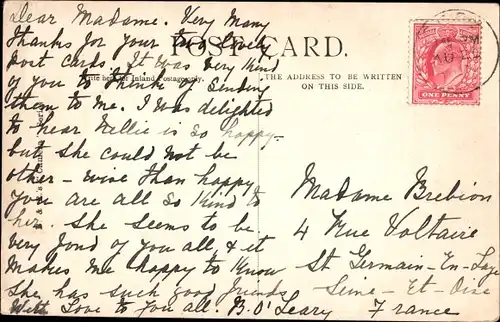 Dear Madame. Very Many
thanks for your two lovely
Post Cards. It was very kind
of you to thinke of sending
them to me. I was delighted
to hear Nellie is so happy-
but she could not be
other-wise than happy
you are all so kind to
her. She seems to be
very fond of you all & it
makes me happy to know
she has such good friends
With Love to you all. B. O'Leary
POST CARD.
Inland Postage only.
THE ADDRESS TO BE WRITTEN
ON THIS SIDE.
ONE PENNY
Madame Brebion
4 Rue Voltaire
St Germain-En-Laye
Seine-Et-Oise
France